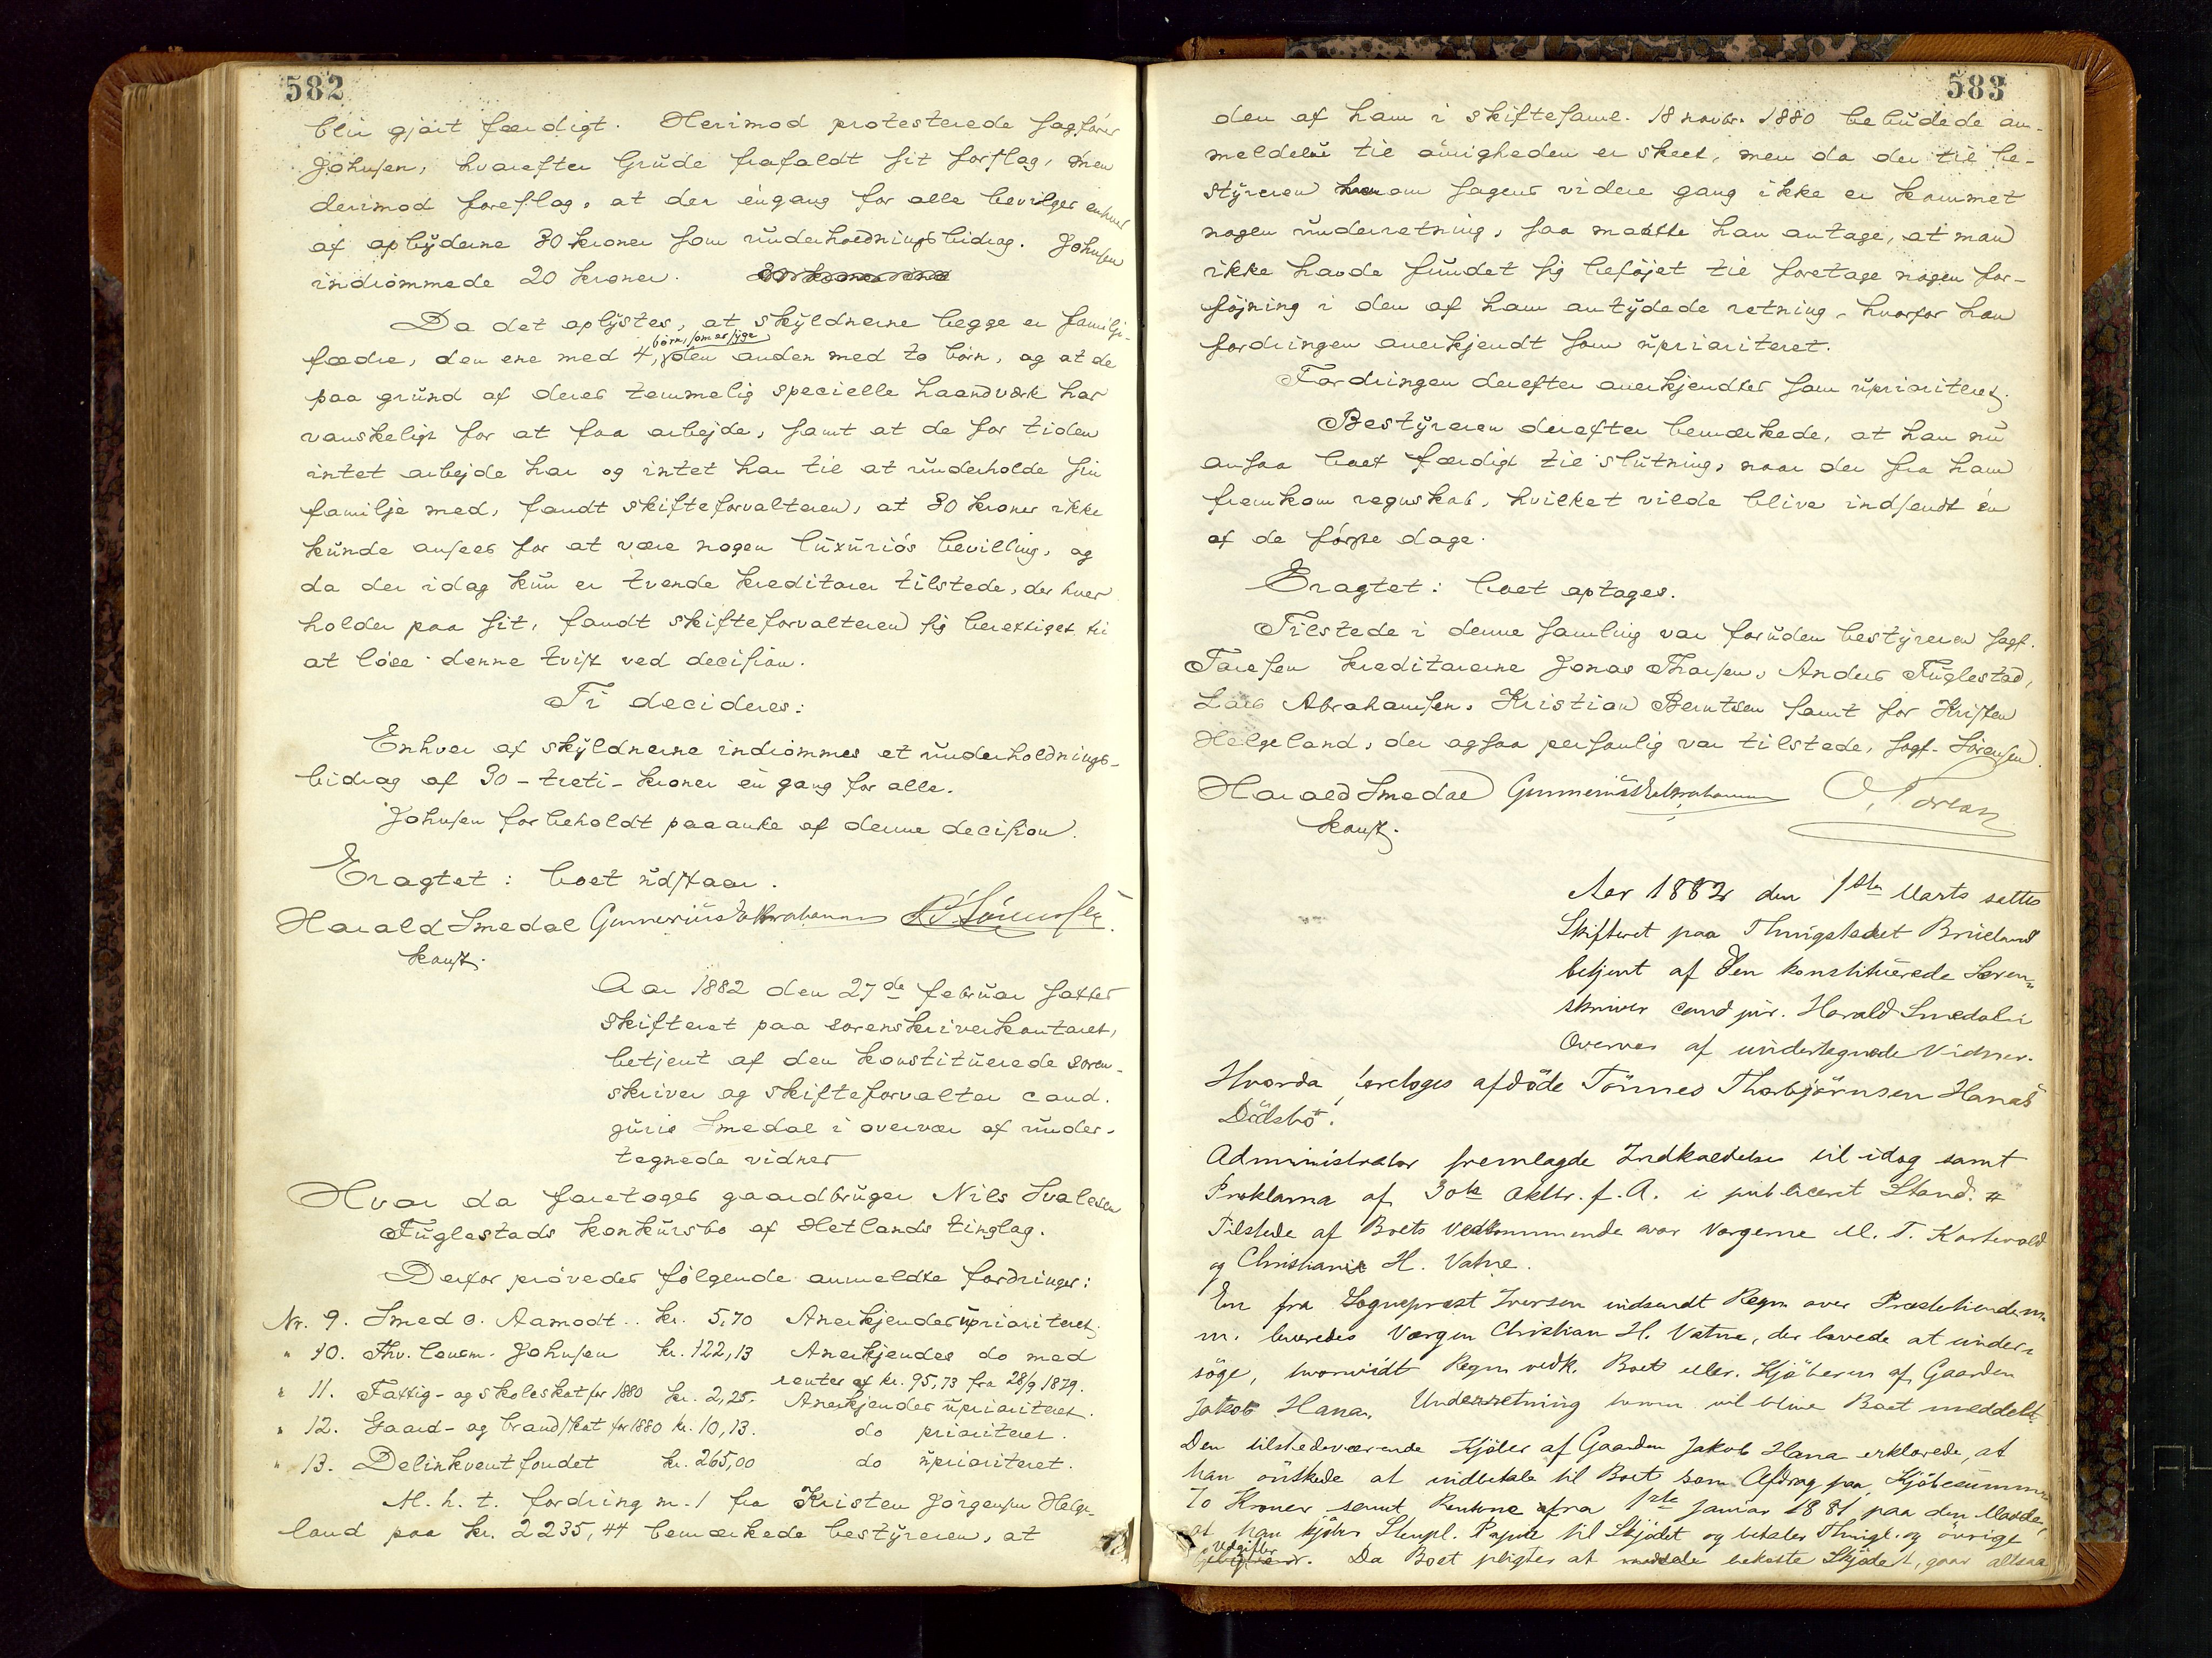 582
bliv gjørt færdigt. Herimod protesterede sagfører
Johnsen, hvorefter Grude frafaldt sit forslag, men
derimod foreslog, at der engang for alle bevilges enhver
af opbyderne 30 kroner som underholdningsbidrag. Johnsen
indrømmede 20 kroner.
Da det oplystes, at skyldnerne begge er familje-
fædre, den ene med 4 børn, som er syge, den anden med to børn, og at de
paa grund af deres temmelig specielle haandværk har
vanskeligt for at faa arbejde, samt at de for tiden
intet arbejde har og intet har til at underholde sin
familje med, fandt skifteforvalteren, at 30 kroner ikke
kunde ansees for at være nogen luxuriøs bevilling, og
da der idag kun er tvende kreditorer tilstede, der hver
holder paa sit, fandt skifteforvalteren sig berettiget til
at løse denne tvist ved decision.
Ti decideres:
Enhver af skyldnerne indrømmes et underholdnings-
bidrag af 30 - treti - kroner en gang for alle.
Johnsen forbeholdt paaanke af denne decision.
Eragtet: boet udstaar.
Harald Smedal Gunnerius Abrahamsen
konst.
Aar 1882 den 27de februar sattes
skifteret paa sorenskriverkontoret,
betjent af den konstituerede soren-
skriver og skifteforvalter cand.
juris Smedal i overvær af under-
tegnede vidner
Hvor da foretoges gaardbruger Nils Svalesen
Fuglestads konkursbo af Hetlands tinglag.
Derfor prøvedes følgende anmeldte fordringer:
Nr. 9. Smed O. Aamodt.. kr. 5,70 Anerkjendes uprioriteret.
" 10. Fhv. lensm. Johnsen kr. 122,13 Anerkjendes do med
renter af kr. 95,73 fra 28/9 1879.
" 11. Fattig- og skoleskat for 1880 kr. 2,25. Anerkjendes uprioriteret.
" 12. Gaard- og brandskat for 1880 kr. 10,13. do prioriteret.
" 13. Delinkventfondet kr. 265,00 do uprioriteret.
M. h. t. fordring nr. 1 fra Kristen Jørgensen Helge-
land paa kr. 2235,44 bemærkede bestyreren, at
583
den af ham i skiftesaml. 18 novbr. 1880 bebudede an-
meldelse til øvrigheden er skeet, men da der til be-
styreren om sagens videre gang ikke er kommet
nogen underretning, saa maatte han antage, at man
ikke havde fundet sig beføjet til foretage nogen for-
føjning i den af ham antydede retning, hvorfor han
fordringen anerkjendt som uprioriteret.
Fordringen derefter anerkjendtes som uprioriteret.
Bestyreren derefter bemærkede, at han nu
ansaa boet færdigt til slutning, naar der fra ham
fremkom regnskab, hvilket vilde blive indsendt en
af de første dage.
Eragtet: boet optages.
Tilstede i denne samling var foruden bestyreren sagf.
Toresen kreditorerne Jonas Thorsen, Anders Fuglestad,
Lars Abrahamsen, Kristian Berntsen samt for Kristen
Helgeland, der ogsaa personlig var tilstede, sagf. Sørensen.
Harald Smedal Gunnerius Abrahamsen
konst.
Aar 1882 den 1ste Marts sattes
Skifteret paa Thingstedet Brueland
betjent af den konstituerede Soren-
skriver cand jur. Harald Smedal i
Overvær af undertegnede Vidner.
Hvorda foretoges afdøde Tønnes Thorbjørnsen Hanas
Dødsbo.
Administrator fremlagde Indkaldelse til idag samt
Proklama af 30te Oktbr. f. A. i publiceret Stand.
Tilstede af Boets Vedkommende var Vergerne M. T.
og Christian H. Vatne.
En fra Sogneprest Iversen indsendt Regn over
m. leveredes Vergen Christian H. Vatne, der lovede at under-
søge, hvorvidt Regn vedk. Boet eller Kjøberen af Gaarden
Jakob Hana. Underretning herom vil blive Boet meddelt.
Den tilstedeværende Kjøber af Gaarden Jakob Hana erklærede, at
han ønskede at indbetale til Boet som Afdrag paa Kjøbesummen
70 Kroner samt Renterne fra 1ste Januar 1881 paa den Maade,
at han kjøber Stempl. Papir til Skjødet og betaler Thingl. og øvrige
Udgifter. Da Boet pligter at bekoste Skjødet, gaar altsaa